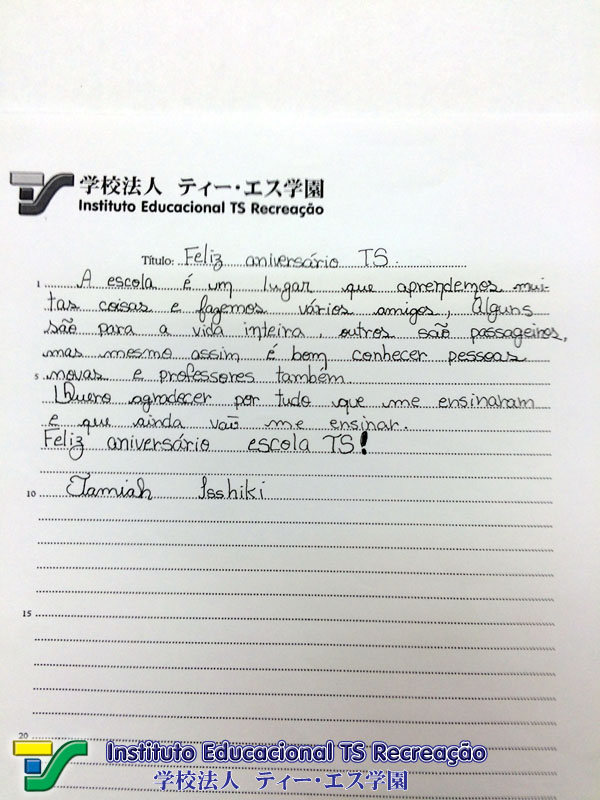 学校法人 ティー・エス学園
Instituto Educacional TS Recreação
Título: Feliz aniversário TS.
1 A escola é um lugar que aprendemos mui-
tas coisas e fazemos vários amigos, Alguns
são para a vida inteira, outros são passageiros,
mas mesmo assim é bom conhecer pessoas
5 novas e professores também
Quero agradecer por tudo que me ensinaram
e que ainda vão me ensinar.
Feliz aniversário escola TS!
10 Tamiah Isshiki
15
20
Instituto Educacional TS Recreação
学校法人 ティー・エス学園